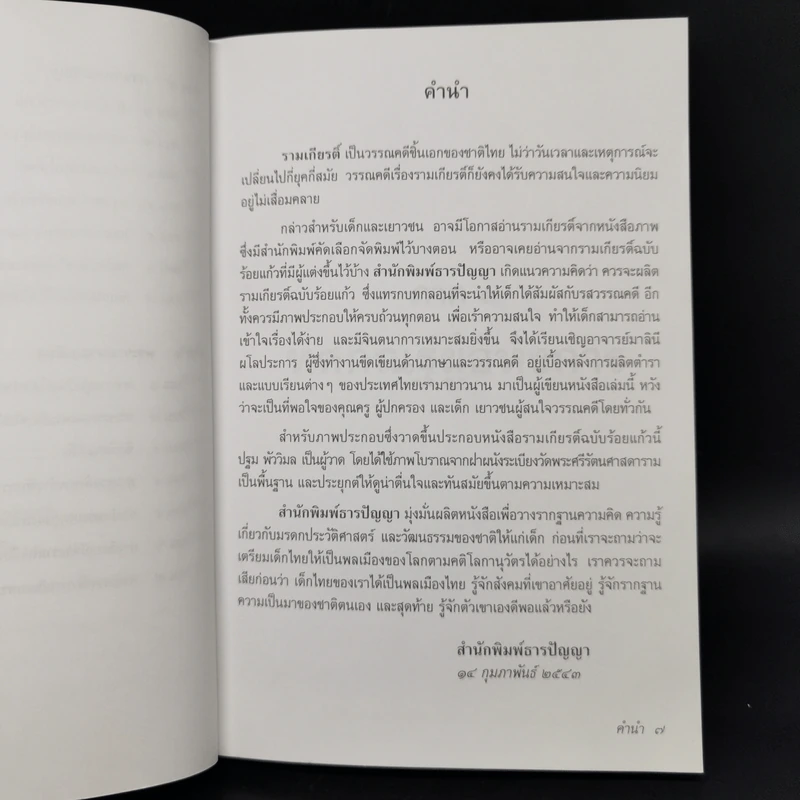 คำนำ
รามเกียรติ์ เป็นวรรณคดีชิ้นเอกของชาติไทย ไม่ว่าวันเวลาและเหตุการณ์จะ
เปลี่ยนไปกี่ยุคกี่สมัย วรรณคดีเรื่องรามเกียรติ์ก็ยังคงได้รับความสนใจและความนิยม
อยู่ไม่เสื่อมคลาย
กล่าวสำหรับเด็กและเยาวชน อาจมีโอกาสอ่านรามเกียรติ์จากหนังสือภาพ
ซึ่งมีสำนักพิมพ์คัดเลือกจัดพิมพ์ไว้บางตอน หรืออาจเคยอ่านจากรามเกียรติ์ฉบับ
ร้อยแก้วที่มีผู้แต่งขึ้นไว้บ้าง สำนักพิมพ์ธารปัญญา เกิดแนวความคิดว่า ควรจะผลิต
รามเกียรติ์ฉบับร้อยแก้ว ซึ่งแทรกบทกลอนที่จะนำให้เด็กได้สัมผัสกับรสวรรณคดี อีก
ทั้งควรมีภาพประกอบให้ครบถ้วนทุกตอน เพื่อเร้าความสนใจ ทำให้เด็กสามารถอ่าน
เข้าใจเรื่องได้ง่าย และมีจินตนาการเหมาะสมยิ่งขึ้น จึงได้เรียนเชิญอาจารย์มาลินี
ผโลประการ ผู้ซึ่งทำงานขีดเขียนด้านภาษาและวรรณคดี อยู่เบื้องหลังการผลิตตำรา
และแบบเรียนต่างๆ ของประเทศไทยเรามายาวนาน มาเป็นผู้เขียนหนังสือเล่มนี้ หวัง
ว่าจะเป็นที่พอใจของคุณครู ผู้ปกครอง และเด็ก เยาวชนผู้สนใจวรรณคดีโดยทั่วกัน
สำหรับภาพประกอบซึ่งวาดขึ้นประกอบหนังสือรามเกียรติ์ฉบับร้อยแก้วนี้
ปฐม พัววิมล เป็นผู้วาด โดยได้ใช้ภาพโบราณจากฝาผนังระเบียงวัดพระศรีรัตนศาสดาราม
เป็นพื้นฐาน และประยุกต์ให้ดูน่าตื่นใจและทันสมัยขึ้นตามความเหมาะสม
สำนักพิมพ์ธารปัญญา มุ่งมั่นผลิตหนังสือเพื่อวางรากฐานความคิด ความรู้
เกี่ยวกับมรดกประวัติศาสตร์ และวัฒนธรรมของชาติให้แก่เด็ก ก่อนที่เราจะถามว่าจะ
เตรียมเด็กไทยให้เป็นพลเมืองของโลกตามคติโลกานุวัตรได้อย่างไร เราควรจะถาม
เสียก่อนว่า เด็กไทยของเราได้เป็นพลเมืองไทย รู้จักสังคมที่เขาอาศัยอยู่ รู้จักรากฐาน
ความเป็นมาของชาติตนเอง และสุดท้าย รู้จักตัวเขาเองดีพอแล้วหรือยัง
สำนักพิมพ์ธารปัญญา
๑๔ กุมภาพันธ์ ๒๕๔๓
คำนำ ๗